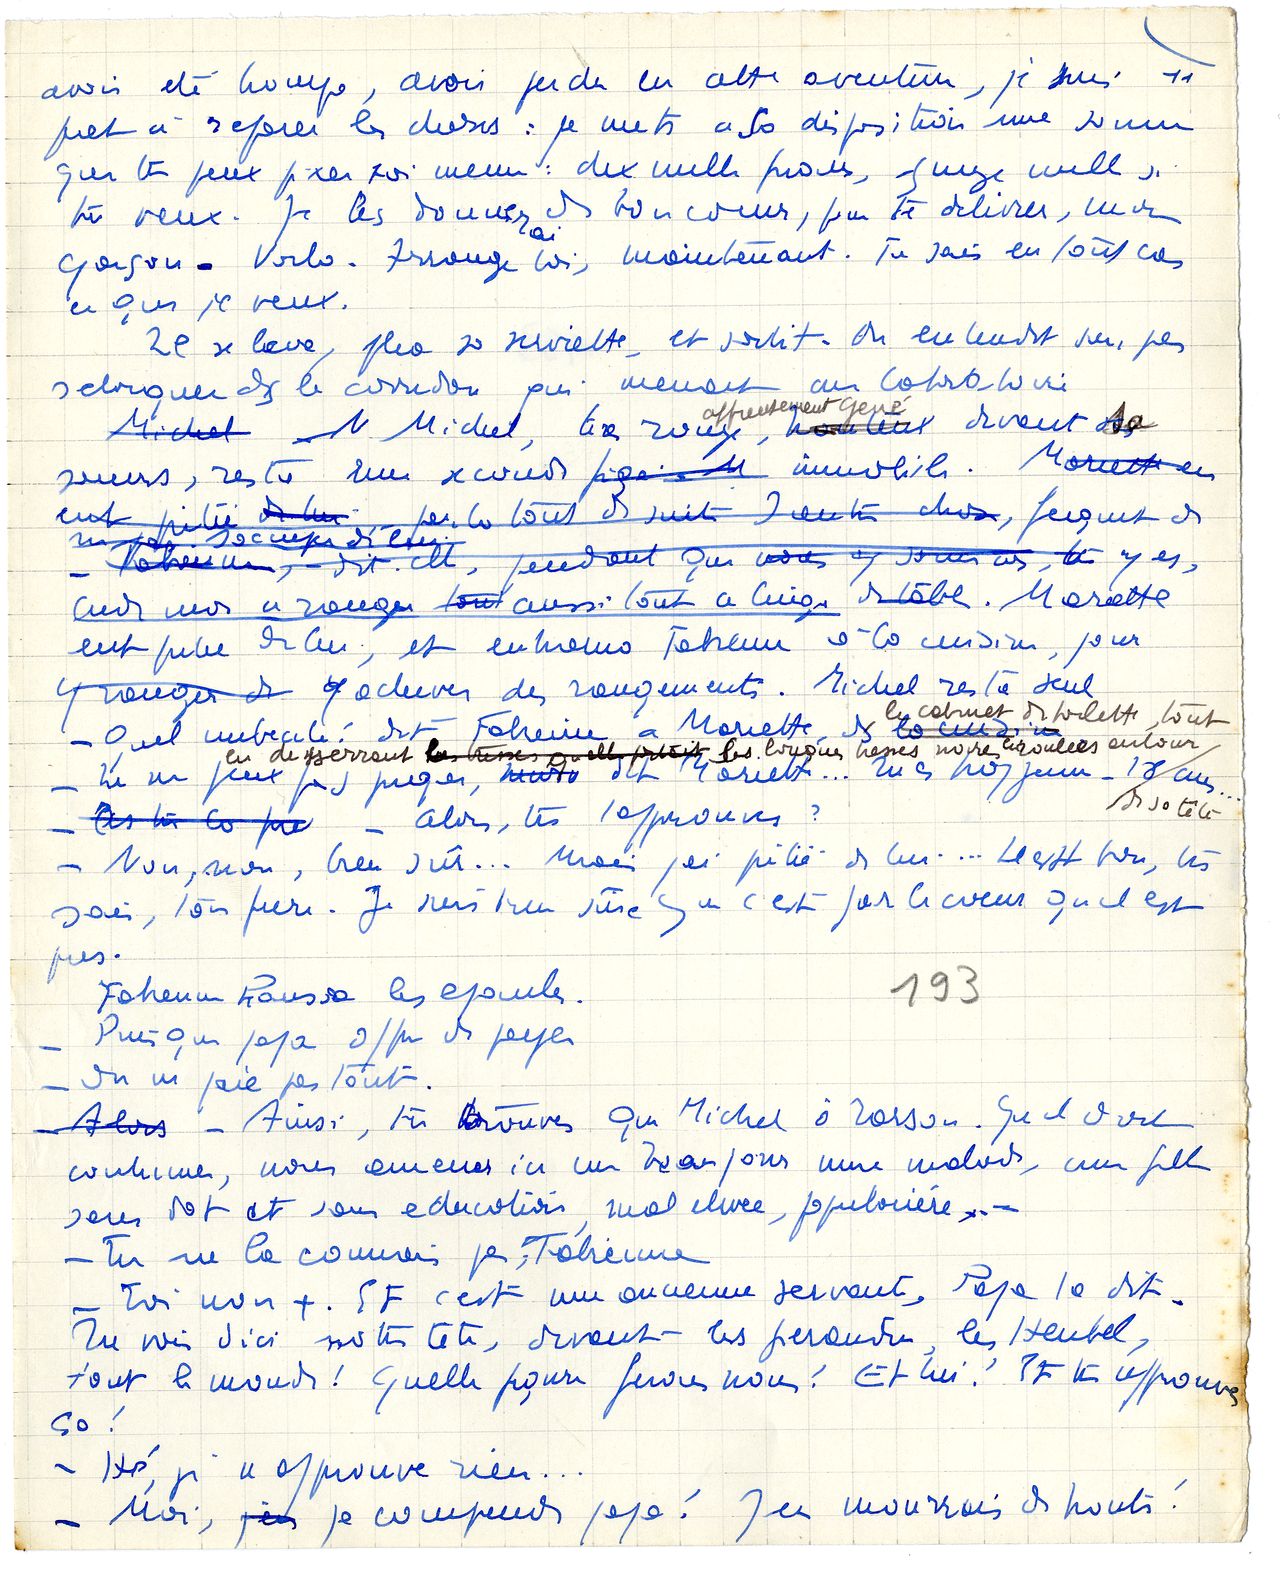 avoir été trompé, avoir perdu en cette aventure, je suis 11
prêt à réparer les choses : je mets à sa disposition une somme
que tu peux fixer toi même : dix mille francs, quinze mille si
tu veux. Je les donnerai de bon coeur, pour te délivrer, mon
garçon. Voila. Arrange toi, maintenant. Tu sais en tout cas
ce que je veux.
Il se leva, plia sa serviette, et sortit. On entendit ses pas
s'éloigner ds le corridor qui menait au laboratoire
Michel Michel, très rouge, honteux affreusement gêné devant ses sa
soeurs, resta une seconde immobile. Mariette en
eut pitié de lui parla tout de suite d'autre chose, feignit de
ne pas s'occuper de lui.
- Fabienne, dit-elle, pendant que nous y sommes, tu y es,
aide moi à ranger tout aussitôt ce linge de table. Mariette
eut pitié de lui, et entraina Fabienne à la cuisine, pour
y ranger de y achever des rangements. Michel resta seul
- Quel imbécile ! dit Fabienne à Mariette, ds la cuisine le cabinet de toilette, tout
en desserrant les tresses qu'elle portait les longues tresses noires enroulées autour
de sa tête
- Tu ne peux pas juger, dit Mariette... Tu es trop jeune - 18 ans...
- Alors, tu l'approuves ?
- Non, non, bien sûr... Mais j'ai pitié de lui... Il est bon, tu
sais, ton frère. Je suis bien sûre que c'est par le coeur qu'il est
pris.
Fabienne haussa les épaules. 193
- Puisque papa offre de payer
- On ne paie pas tout.
- Alors - Ainsi, tu trouves que Michel a raison. Qu'il doit
continuer, nous amener ici un beau jour une malade, une fille
sans dot et sans education, mal elevée, poitrinaire...
- Tu ne la connais pas, Fabienne
- Toi non +. Et c'est une ancienne servante, Papa l'a dit.
Tu vois d'ici notre tête, devant les les Heubel,
tout le monde ! Quelle figure ferons nous ! Et lui ! Et tu approuves
ça !
- Hé, je n'approuve rien...
- Moi, j'en je comprends papa ! J'en mourrais de honte !